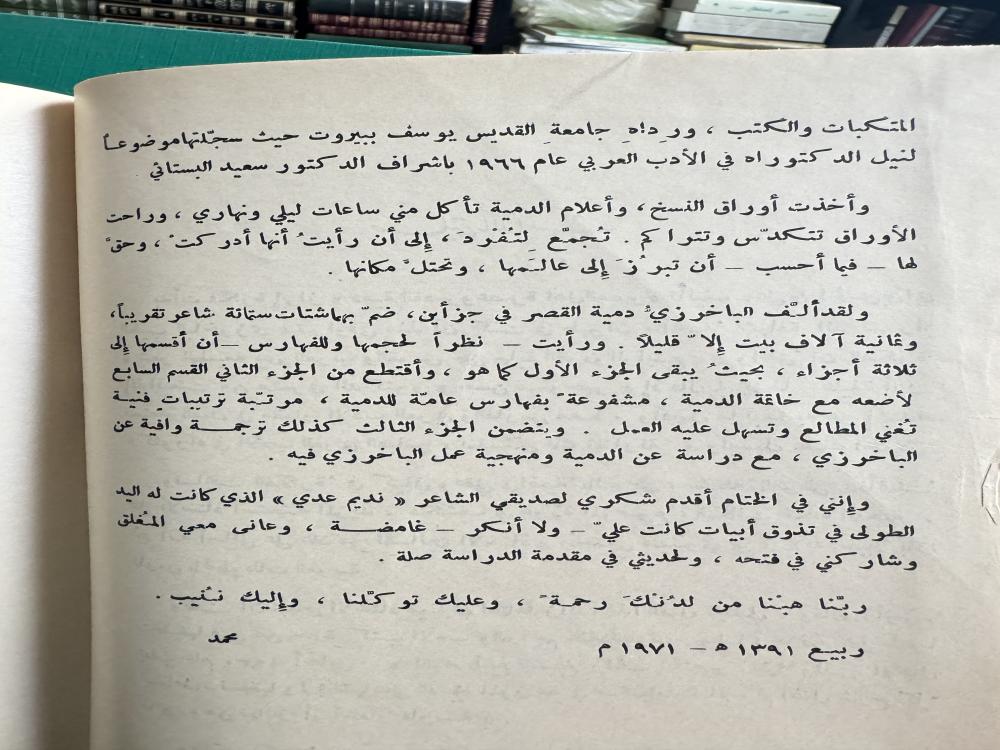 المتكبات والكتب ، ورداهِ جامعةِ القديس يوسف ببيروت حيث سجّلتها موضوعاً
لنيل الدكتوراه في الأدب العربي عام ١٩٦٦ باشراف الدكتور سعيد البستاني
وأخذت أوراق النسخ ، وأعلام الدمية تأكل مني ساعات ليلي ونهاري ، وراحت
الأوراق تتكدّس وتتراكم . تُجمّع لتُفْردَ ، إِلى أن رأيتُ أنها أدركتْ ، وحقَّ
لها – فيما أحسب – أن تبرُزَ إِلى عالَمها ، وتحتلَّ مكانها .
ولقد ألّف الباخرزيُّ دمية القصر في جزأين ، ضمّ بهما شتات ستمائة شاعر تقريباً ،
وثمانية آلاف بيت إِلاّ قليلاً . ورأيت – نظراً لحجمها وللفهارس – أن أقسمها إِلى
ثلاثة أجزاء ، بحيثُ يبقى الجزء الأول كما هو ، وأقتطع من الجزء الثاني القسم السابع
لأضعه مع خاتمة الدمية ، مشفوعةً بفهارس عامّة للدمية ، مرتّبة ترتيباتٍ فنية
تُغني المطالع وتسهل عليه العمل . ويتضمن الجزء الثالث كذلك ترجمة وافية عن
الباخرزي ، مع دراسة عن الدمية ومنهجية عمل الباخرزي فيه .
وإِنني في الختام أقدم شكري لصديقي الشاعر « نديم عدي » الذي كانت له اليد
الطولى في تذوق أبيات كانت عليّ – ولا أنكر – غامضة ، وعانى معي المُغلق
وشاركني في فتحه ، ولحديثي في مقدمة الدراسة صلة .
ربّنا هبْنا من لدُنْكَ رحمةً ، وعليك توكّلنا ، وإِليك ننُيب .
ربيع ١٣٩١ ه – ١٩٧١ م
محمد